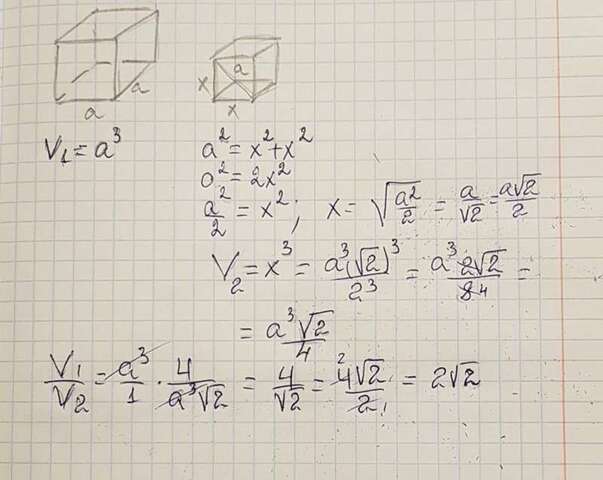 a
a
a
x
x
V₁ = a³
a² = x² + x²
a² = 2x²
a²/2 = x² ; x = √(a²/2) = a/√2 = a√2/2
V₂ = x³ = a³(√2)³/2³ = a³ 2√2/8 4 =
= a³√2/4
V₁/V₂ = a³/1 · 4/a³√2 = 4/√2 = 4 2 √2/2 1 = 2√2